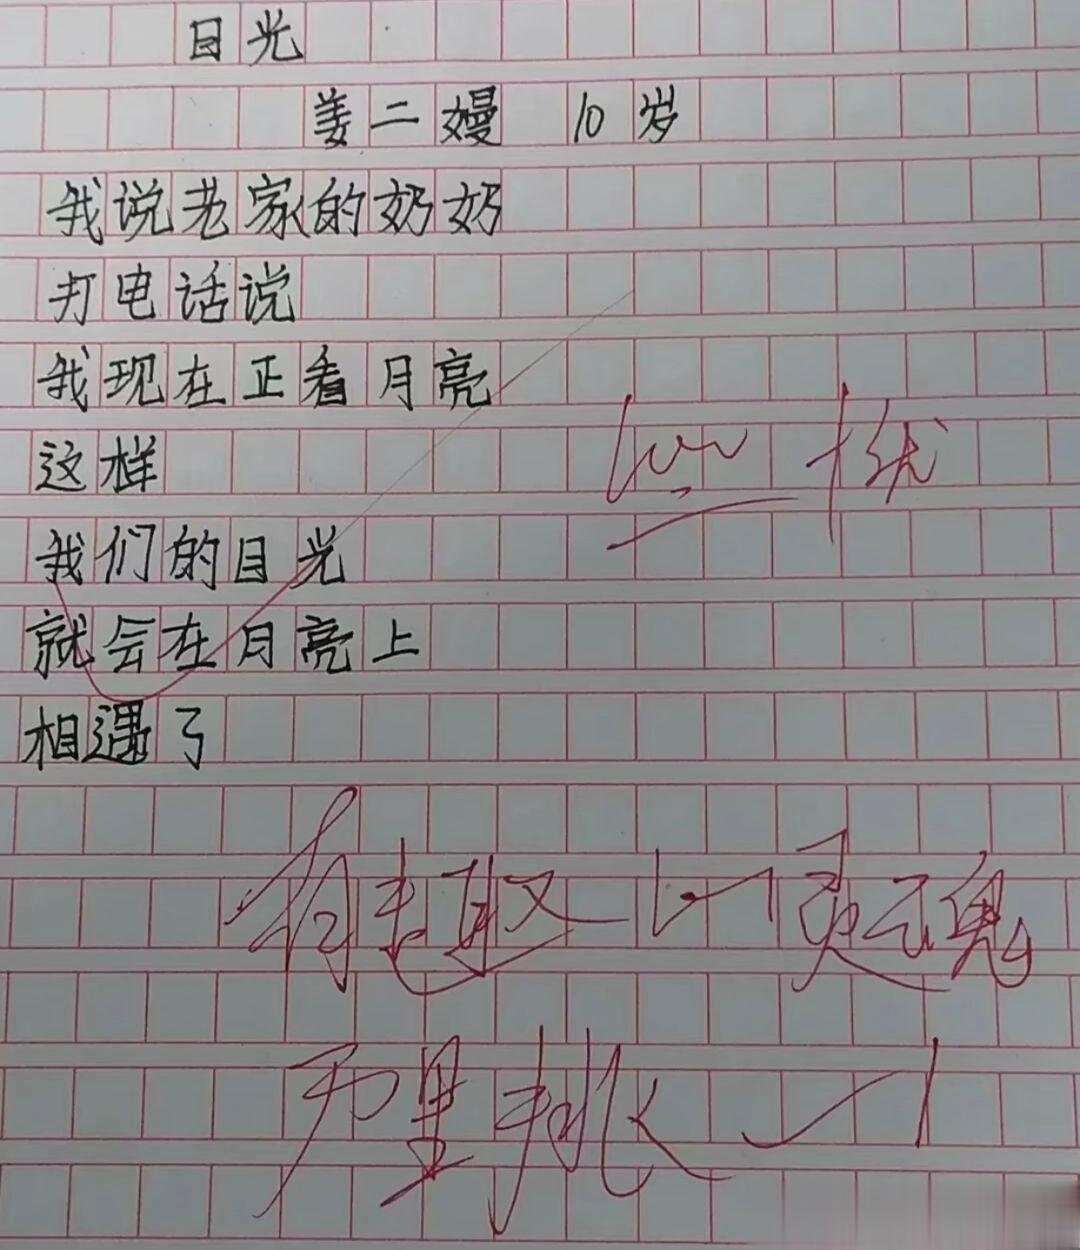 目光
姜二嫚 10岁
我说老家的奶奶
打电话说
我现在正看月亮
这样
我们的目光
就会在月亮上
相遇了
有趣的灵魂
万里挑一